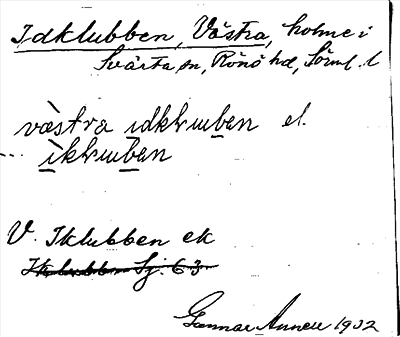 Idklubben, Västra, holme i
Svärta sn, Rönö hd, Söml. l
västra idkluben el.
ikkluban
V. Iklubben ek
Iklubben Sj. 63
Gunnar 1932